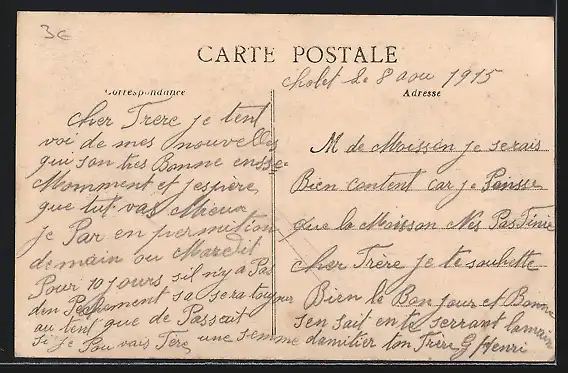 3€
CARTE POSTALE
Cholet le 8 aou 1915
Correspondance
Adresse
Cher Frere je tent
voi de mes nouvelles
qui son tres Bonne ensse
Momment et jespière
que tut vas Mieux
je Par en permition
demain ou Mardit
Pour 10 jours sil n'y a Pas
dun Pechement sa sera toujour
au tent que de Passeut
si je Pou vais fere une semme
M de Moisson je serais
Bien content car je Poisse
que la Moisson Nes Pas Finie
cher Frère je te souhette
Bien le Bonjour et Bonne
sen sait en te serrant la main
damitier ton Frère G Henri